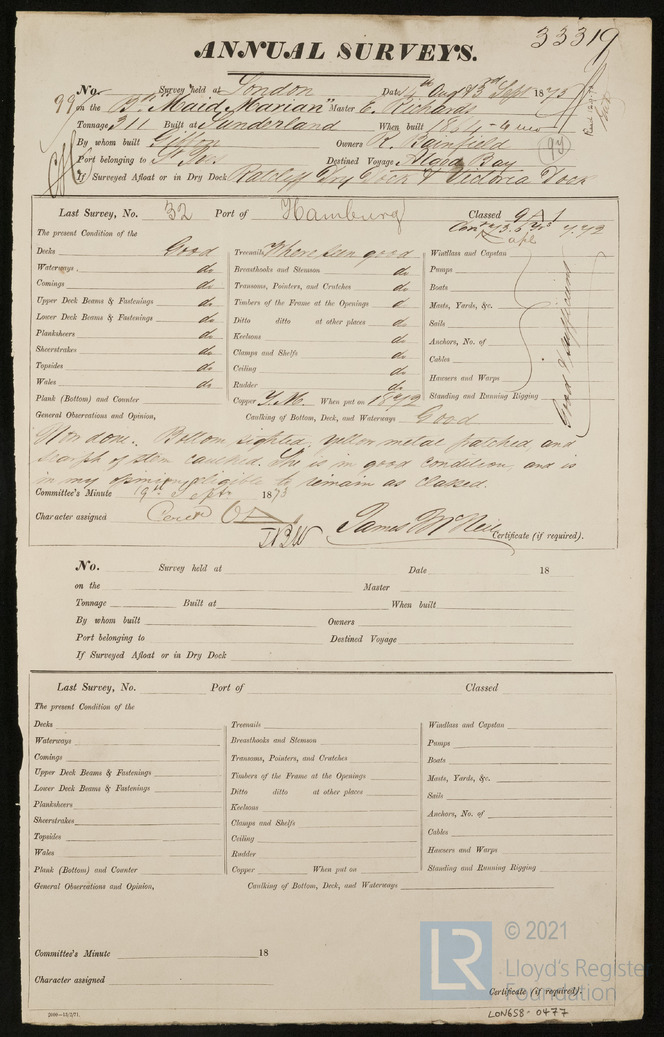 33319
ANNUAL SURVEYS.
No. Survey held at London Date 14th Aug & 3rd Sept 1873
99 on the Bn "Maid Marian" Master E. Richards
Tonnage 311 Built at Sunderland When built 1864 - 4
By whom built Owners R. Bainfield
Port belonging to St. Ives Destined Voyage Algoa Bay
If Surveyed Afloat or in Dry Dock Ratcliff Dry Dock & Victoria Dock
Last Survey, No. 32 Port of Hamburg Classed 9 A 1
The present Condition of the
7.72
Decks Good
Waterways do
Comings do
Upper Deck Beams & Fastenings do
Lower Deck Beams & Fastenings do
Planksheers do
Sheerstrakes do
Topsides do
Wales do
Plank (Bottom) and Counter
Treenails Where seen good
Breasthooks and Stemson do
Transoms, Pointers, and Crutches do
Timbers of the Frame at the Openings do
Ditto ditto at other places do
Keelsons do
Clamps and Shelfs do
Ceiling do
Rudder do
Copper Y.M. When put on 1872
Windlass and Capstan
Pumps
Boats
Masts, Yards, &c.
Sails
Anchors, No. of
Cables
Hawsers and Warps
Standing and Running Rigging
Good & Sufficient
General Observations and Opinion, Caulking of Bottom, Deck, and Waterways Good
Now done. Bottom sighted, yellow metal patched, and
scarph of stem caulked. She is in good condition, and is
in my opinion eligible to remain as classed.
Committee's Minute 9th Septr 1873
Character assigned
James McNeil
Certificate (if required).
No. Survey held at Date 18
on the Master
Tonnage Built at When built
By whom built Owners
Port belonging to Destined Voyage
If Surveyed Afloat or in Dry Dock
Last Survey, No. Port of Classed
The present Condition of the
Decks
Waterways
Comings
Upper Deck Beams & Fastenings
Lower Deck Beams & Fastenings
Planksheers
Sheerstrakes
Topsides
Wales
Plank (Bottom) and Counter
Treenails
Breasthooks and Stemson
Transoms, Pointers, and Crutches
Timbers of the Frame at the Openings
Ditto ditto at other places
Keelsons
Clamps and Shelfs
Ceiling
Rudder
Copper When put on
Windlass and Capstan
Pumps
Boats
Masts, Yards, &c.
Sails
Anchors, No. of
Cables
Hawsers and Warps
Standing and Running Rigging
General Observations and Opinion, Caulking of Bottom, Deck, and Waterways
Committee's Minute 18
Character assigned
Certificate (if required).
2000—13/2/71.
LON658-0477
LR
© 2021
Lloyd's Register
Foundation